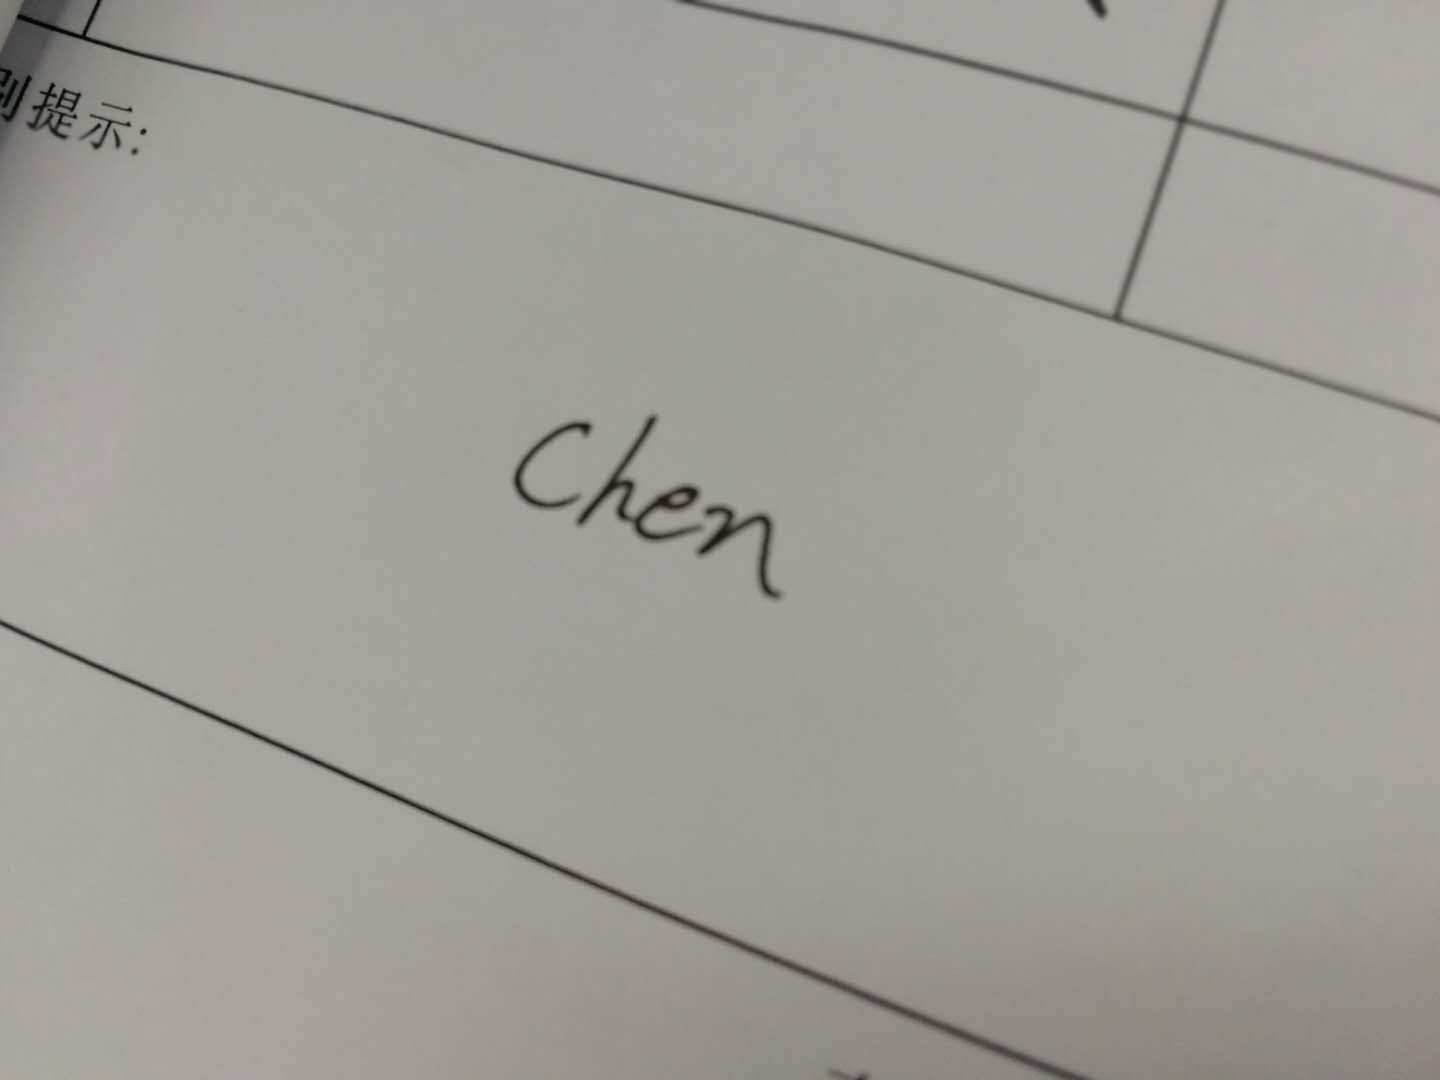 别提示:
Chen